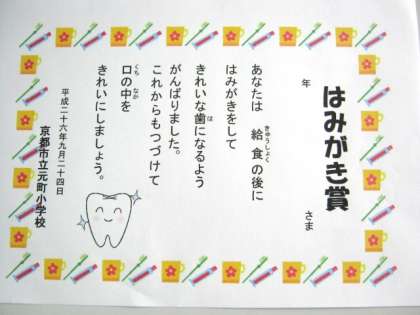 はみがき賞
年 さま
あなたは 給食の後に
はみがきをして
きれいな歯になるよう
がんばりました。
これからもつづけて
口の中を
きれいにしましょう。
平成二十六年九月二十四日
京都市立元町小学校